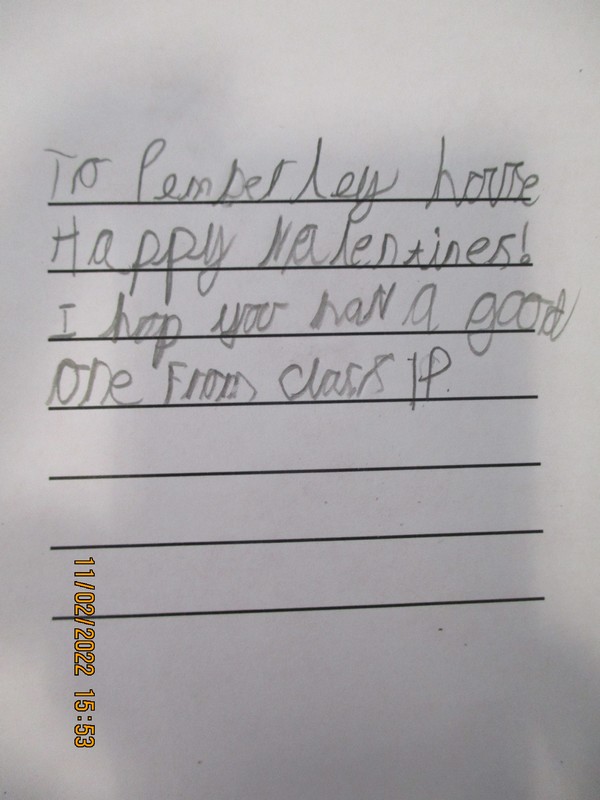 To Pemberley house
Happy Valentines!
I hop you hav a good
one From class 1P.
11/02/2022 15:53